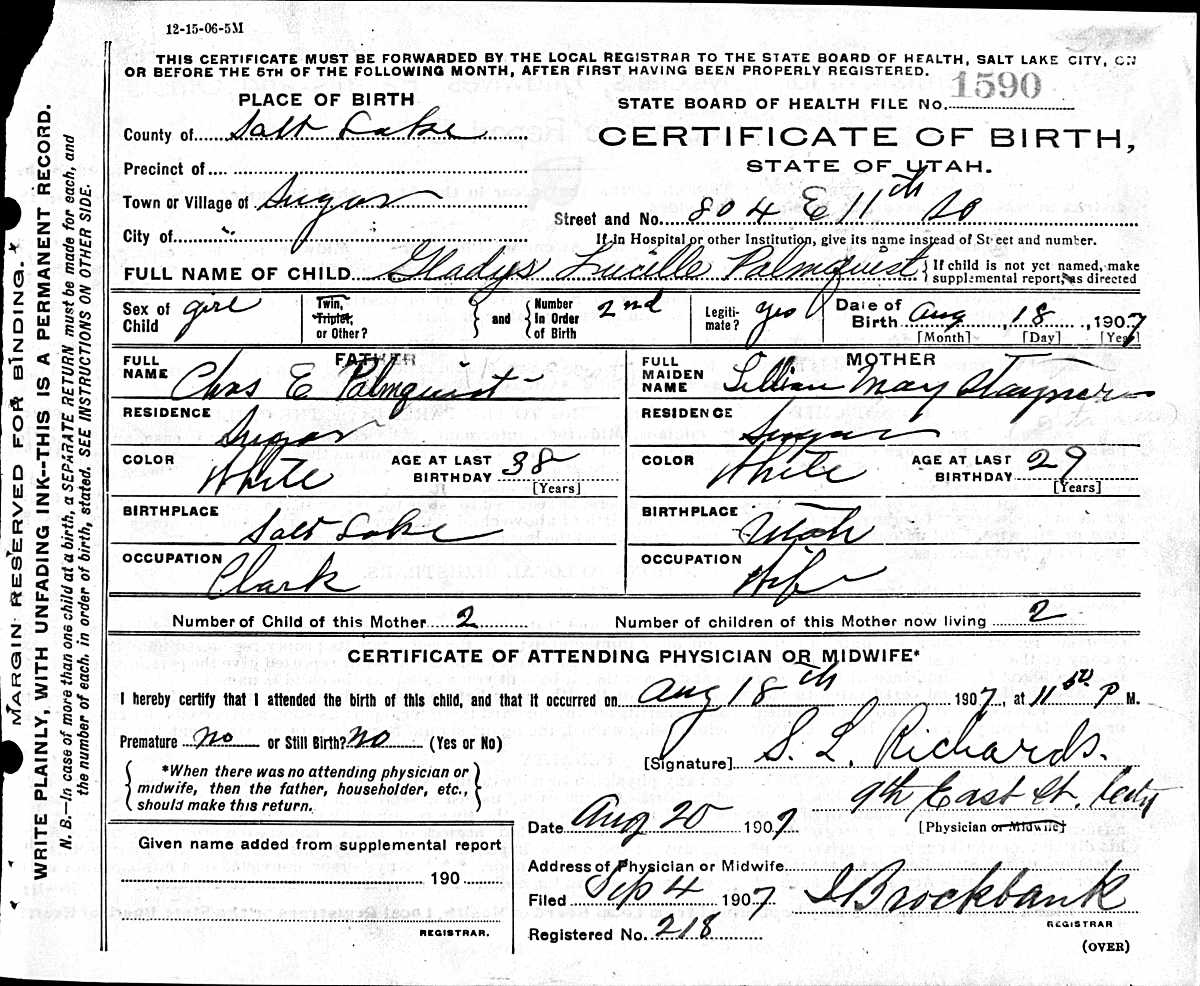 12-15-06-5M
THIS CERTIFICATE MUST BE FORWARDED BY THE LOCAL REGISTRAR TO THE STATE BOARD OF HEALTH, SALT LAKE CITY, ON
OR BEFORE THE 5TH OF THE FOLLOWING MONTH, AFTER FIRST HAVING BEEN PROPERLY REGISTERED.
PLACE OF BIRTH
STATE BOARD OF HEALTH FILE No. 1590
County of Salt Lake
CERTIFICATE OF BIRTH,
STATE OF UTAH.
Precinct of
Town or Village of Sugar
Street and No. 804 E 11th So
City of
If in Hospital or other Institution, give its name instead of Street and number.
FULL NAME OF CHILD Gladys Lucille Palmquist
If child is not yet named, make
supplemental report, as directed
Sex of Child girl
Twin, Triplet, or Other?
and
Number in Order of Birth 2nd
Legitimate? yes
Date of Birth Aug 18, 1907
[Month] [Day] [Year]
FATHER
FULL NAME Chas E Palmquist
RESIDENCE Sugar
COLOR White AGE AT LAST BIRTHDAY 38
[Years]
BIRTHPLACE Salt Lake
OCCUPATION Clark
MOTHER
FULL MAIDEN NAME Lillian May Stayner
RESIDENCE Sugar
COLOR White AGE AT LAST BIRTHDAY 29
[Years]
BIRTHPLACE Utah
OCCUPATION Wife
Number of Child of this Mother 2 Number of children of this Mother now living 2
CERTIFICATE OF ATTENDING PHYSICIAN OR MIDWIFE*
I hereby certify that I attended the birth of this child, and that it occurred on Aug 18th 1907, at 11 50 P M.
Premature no or Still Birth? no (Yes or No)
*When there was no attending physician or
midwife, then the father, householder, etc.,
should make this return.
[Signature] S. L. Richards.
9th East St. City
Date Aug 20 1907
[Physician or Midwife]
Given name added from supplemental report
190
REGISTRAR.
Address of Physician or Midwife
Filed Sep 4 1907 Brockbank
REGISTRAR
Registered No. 218
(OVER)
MARGIN RESERVED FOR BINDING.
WRITE PLAINLY, WITH UNFADING INK--THIS IS A PERMANENT RECORD.
N. B.—In case of more than one child at birth, a SEPARATE RETURN must be made for each, and
the number of each, in order of birth, stated. SEE INSTRUCTIONS ON OTHER SIDE.